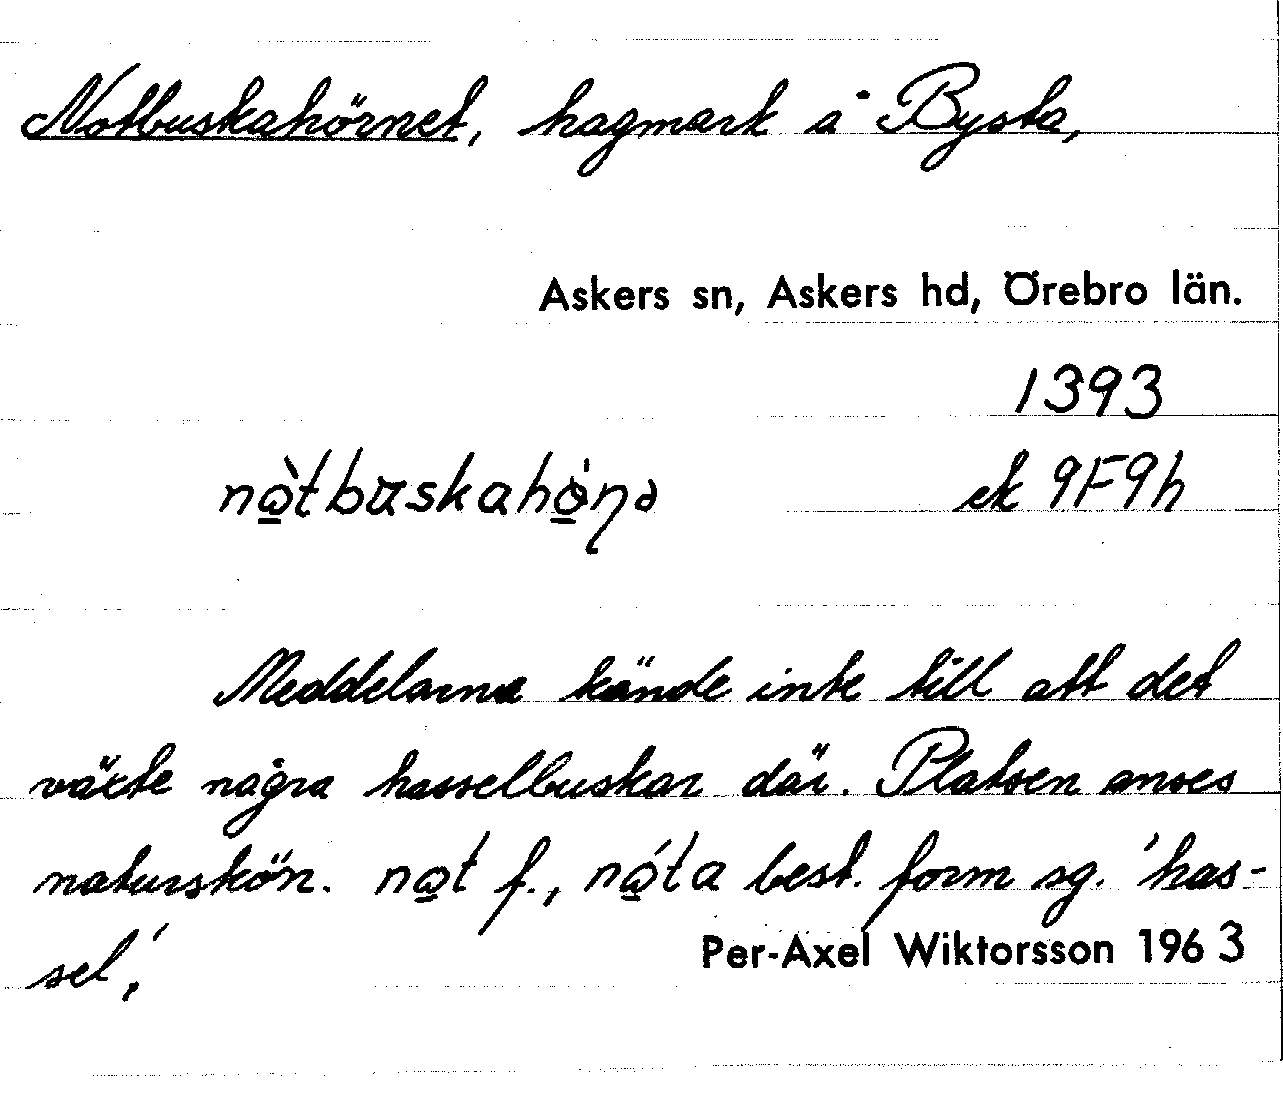 Notbuskahörnet, hagmark å Bysta,
Askers sn, Askers hd, Örebro län.
1393
ek 9F9h
Meddelarna kände inte till att det
växte några hasselbuskar där. Platsen anses
naturskön. f., best. form sg. 'has-
sel'.
Per-Axel Wiktorsson 1963